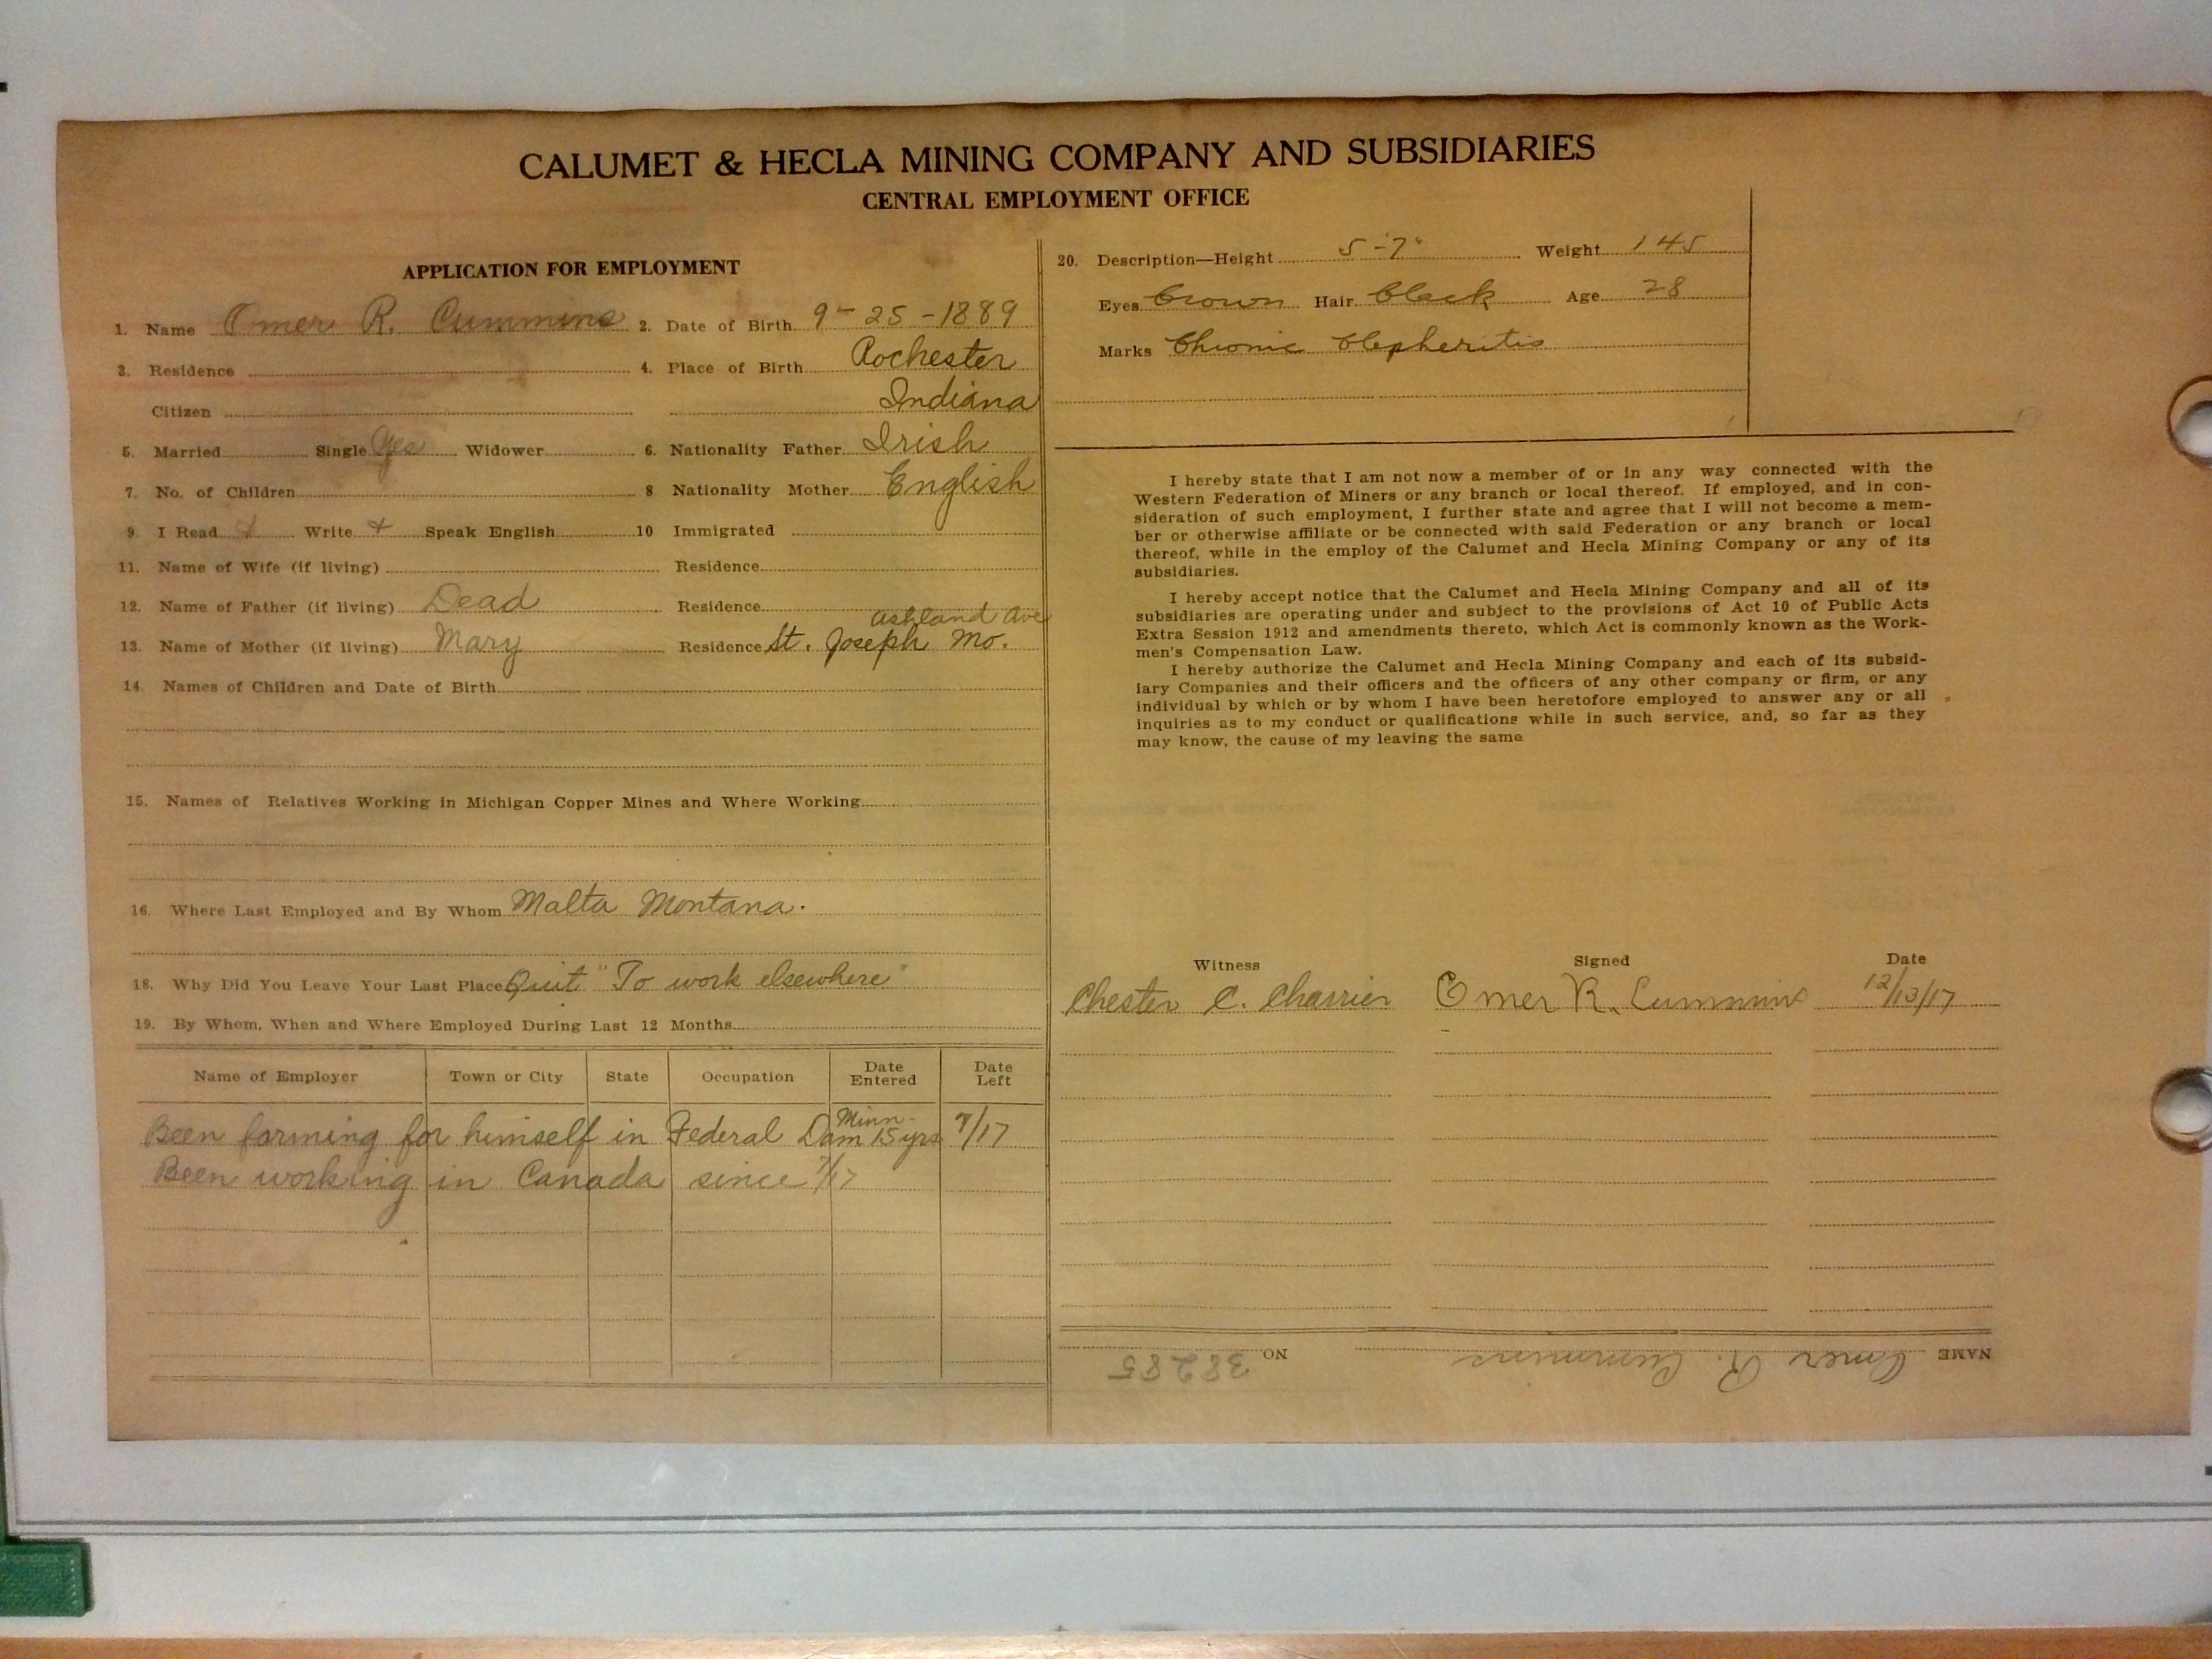 CALUMET & HECLA MINING COMPANY AND SUBSIDIARIES
CENTRAL EMPLOYMENT OFFICE
APPLICATION FOR EMPLOYMENT
1. Name Omer R. Cummins 2. Date of Birth 9-25-1889
3. Residence 4. Place of Birth Rochester
Citizen Indiana
5. Married Single Yes Widower 6. Nationality Father Irish
7. No. of Children 8 Nationality Mother English
9. I Read + Write + Speak English 10 Immigrated
11. Name of Wife (if living) Residence
12. Name of Father (if living) Dead Residence
Ashland Ave
13. Name of Mother (if living) Mary Residence St. Joseph Mo.
14. Names of Children and Date of Birth
15. Names of Relatives Working in Michigan Copper Mines and Where Working
16. Where Last Employed and By Whom Malta Montana.
18. Why Did You Leave Your Last Place Quit "To work elsewhere"
19. By Whom, When and Where Employed During Last 12 Months
Name of Employer Town or City State Occupation Date Entered Date Left
Minn.
Been farming for himself in Federal Dam 15 yrs 7/17
Been working in Canada since 7/17
20. Description—Height 5-7" Weight 145
Eyes Brown Hair Black Age 28
Marks Chronic Blepheritis
I hereby state that I am not now a member of or in any way connected with the
Western Federation of Miners or any branch or local thereof. If employed, and in con-
sideration of such employment, I further state and agree that I will not become a mem-
ber or otherwise affiliate or be connected with said Federation or any branch or local
thereof, while in the employ of the Calumet and Hecla Mining Company or any of its
subsidiaries.
I hereby accept notice that the Calumet and Hecla Mining Company and all of its
subsidiaries are operating under and subject to the provisions of Act 10 of Public Acts
Extra Session 1912 and amendments thereto, which Act is commonly known as the Work-
men's Compensation Law.
I hereby authorize the Calumet and Hecla Mining Company and each of its subsid-
iary Companies and their officers and the officers of any other company or firm, or any
individual by which or by whom I have been heretofore employed to answer any or all
inquiries as to my conduct or qualifications while in such service, and, so far as they
may know, the cause of my leaving the same
Witness Signed Date
Chester C. Charrier Omer R. Cummins 12/13/17
NAME Omer R. Cummins NO 38285